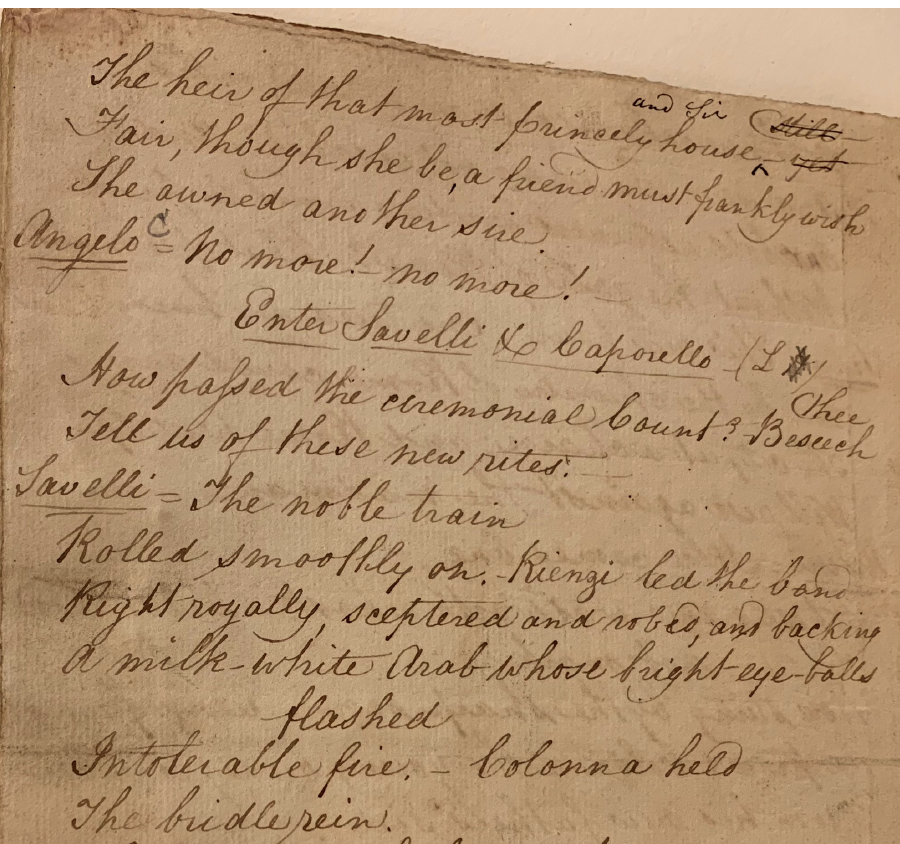 The heir of that most princely house – and Sir still yet
Fair, though she be, a friend must frankly wish
She owned another sire
Angelo C = No more! no more! –
Enter Savelli & Caporello – (L
How passed the ceremonial Count? – Beseech thee
Tell us of these new rites. –
Savelli = The noble train
Rolled smoothly on. – Rienzi led the band
Right royally, sceptered and robed, and backing
A milk-white Arab whose bright eye-balls
flashed
Intolerable fire. – Colonna held
The bridle rein.